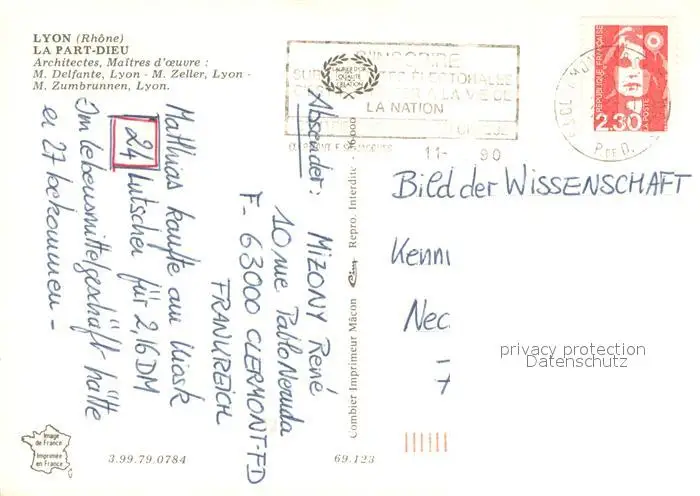 LYON (Rhône)
LA PART-DIEU
Architectes, Maîtres d'œuvre :
M. Delfante, Lyon - M. Zeller, Lyon -
M. Zumbrunnen, Lyon.
Matthias kaufte am Kiosk
24 Lutscher für 2,16 DM
Im Lebensmittelgeschäft hätte
er 27 bekommen -
Absender: MIZONY René
10 rue Pablo Neruda
F- 63000 CLERMONT-FD
FRANKREICH
Image
de France
Imprimée
en France
3.99.79.0784
69.123
Combier Imprimeur Mâcon
Repro. Interdite
S'INSCRIRE
LA VIE DE
LA NATION
11- 90
REPUBLIQUE FRANÇAISE
2,30
LA POSTE
P. DE D.
Bild der WISSENSCHAFT
Kenn
Nec
7
privacy protection
Datenschutz